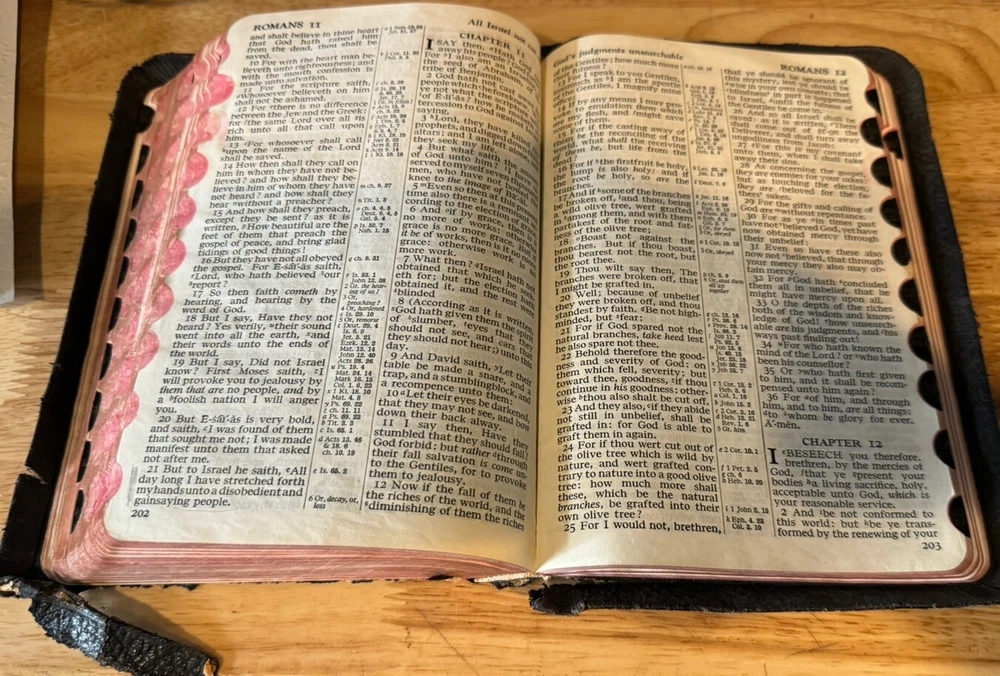 ROMANS 11
and shalt believe in thine heart
that God hath raised him
from the dead, thou shalt be
saved.
10 For with the heart man be-
lieveth unto righteousness; and
with the mouth confession is
made unto salvation.
11 For the scripture saith,
Whosoever believeth on him
shall not be ashamed.
12 For there is no difference
between the Jew and the Greek:
for the same Lord over all is
rich unto all that call upon
him.
13 For whosoever shall call
upon the name of the Lord
shall be saved.
14 How then shall they call on
him in whom they have not be-
lieved? and how shall they be-
lieve in him of whom they have
not heard? and how shall they
hear without a preacher?
15 And how shall they preach,
except they be sent? as it is
written, How beautiful are the
feet of them that preach the
gospel of peace, and bring glad
tidings of good things!
16 But they have not all obeyed
the gospel. For E-sâi´âs saith,
Lord, who hath believed our
report?
17 So then faith cometh by
hearing, and hearing by the
word of God.
18 But I say, Have they not
heard? Yes verily, their sound
went into all the earth, and
their words unto the ends of
the world.
19 But I say, Did not Israel
know? First Moses saith, I
will provoke you to jealousy by
them that are no people, and by
a foolish nation I will anger
you.
20 But E-sâi´âs is very bold,
and saith, I was found of them
that sought me not; I was made
manifest unto them that asked
not after me.
21 But to Israel he saith, All
day long I have stretched forth
my hands unto a disobedient and
gainsaying people.
202
m ch. 8. 27
n Tit. 1. 3
q ch. 3. 31
r Is. 53. 1
John 12. 38
d Acts 13. 46
& 18. 6
ch. 10. 19
e Is. 65. 2
6 Or, decay, or,
loss
All Israel not
CHAPTER 11
I SAY then, Hath God
away his people?
For I also am
the seed of Abraham,
tribe of Benjamin.
2 God hath not cast away
people which he
ye not what the
of E-li´as? how
intercession to God against
saying,
3 Lord, they have killed
prophets, and digged down
altars; and I am left
they seek my life.
4 But what saith the
of God unto him? I have
served to myself seven
men, who have not bowed
knee to the image of
5 Even so then at this
time also there is a remnant
cording to the election of
6 And if by grace, then
no more of works:
grace is no more grace.
it be of works, then is it
grace: otherwise work is
more work.
7 What then? Israel hath not
obtained that which he
eth for; but the election
obtained it, and the rest were
blinded
8 (According as it is written,
God hath given them the spirit
of slumber, eyes that they
should not see, and ears that
they should not hear;) unto this
day.
9 And David saith, Let their
table be made a snare, and a
trap, and a stumblingblock, and
a recompence unto them:
10 Let their eyes be darkened,
that they may not see, and
down their back alway.
11 I say then, Have they
stumbled that they should fall?
God forbid: but rather through
their fall salvation is come unto
the Gentiles, for to provoke
them to jealousy.
12 Now if the fall of them be
the riches of the world, and the
diminishing of them the riches
God's judgments unsearchable
of the Gentiles; how much more
their fulness?
13 For I speak to you Gentiles,
inasmuch as I am the apostle
of the Gentiles, I magnify mine
office:
14 If by any means I may pro-
voke to emulation them which
are my flesh, and might save
some of them.
15 For if the casting away of
them be the reconciling of the
world, what shall the receiving
of them be, but life from the
dead?
16 For if the firstfruit be holy,
the lump is also holy: and if
the root be holy, so are the
branches.
17 And if some of the branches
be broken off, and thou, being
a wild olive tree, wert graffed
in among them, and with them
partakest of the root and fat-
ness of the olive tree;
18 Boast not against the
branches. But if thou boast,
thou bearest not the root, but
the root thee.
19 Thou wilt say then, The
branches were broken off, that
I might be grafted in.
20 Well; because of unbelief
they were broken off, and thou
standest by faith. Be not high-
minded, but fear:
21 For if God spared not the
natural branches, take heed lest
he also spare not thee.
22 Behold therefore the good-
ness and severity of God: on
them which fell, severity; but
toward thee, goodness, if thou
continue in his goodness: other-
wise thou also shalt be cut off.
23 And they also, if they abide
not still in unbelief, shall be
grafted in: for God is able to
graft them in again.
24 For if thou wert cut out of
the olive tree which is wild by
nature, and wert grafted con-
trary to nature into a good olive
tree: how much more shall
these, which be the natural
branches, be grafted into their
own olive tree?
25 For I would not, brethren,
e 2 Cor. 10. 1
i 1 John 2. 15
k Eph. 4. 23
Col. 3. 10
ROMANS 12
that ye should be ignorant of
this mystery, lest ye should be
wise in your own conceits; that
blindness in part is happened
to Israel, until the fulness of
the Gentiles be come in.
26 And so all Israel shall be
saved: as it is written, There
shall come out of Sion the
Deliverer, and shall turn away
ungodliness from Jacob:
27 For this is my covenant
unto them, when I shall take
away their sins.
28 As concerning the gospel,
they are enemies for your sakes:
but as touching the election,
they are beloved for the fa-
thers' sakes.
29 For the gifts and calling of
God are without repentance.
30 For as ye in times past
have not believed God, yet have
now obtained mercy through
their unbelief:
31 Even so have these also
now not believed, that through
your mercy they also may ob-
tain mercy.
32 For God hath concluded
them all in unbelief, that he
might have mercy upon all.
33 O the depth of the riches
both of the wisdom and know-
ledge of God! how unsearch-
able are his judgments, and his
ways past finding out!
34 For who hath known the
mind of the Lord? or who hath
been his counsellor?
35 Or who hath first given
to him, and it shall be recom-
pensed unto him again?
36 For of him, and through
him, and to him, are all things:
to whom be glory for ever.
Ā´-mĕn.
CHAPTER 12
I BESEECH you therefore,
brethren, by the mercies of
God, that ye present your
bodies a living sacrifice, holy,
acceptable unto God, which is
your reasonable service.
2 And be not conformed to
this world: but be ye trans-
formed by the renewing of your
203